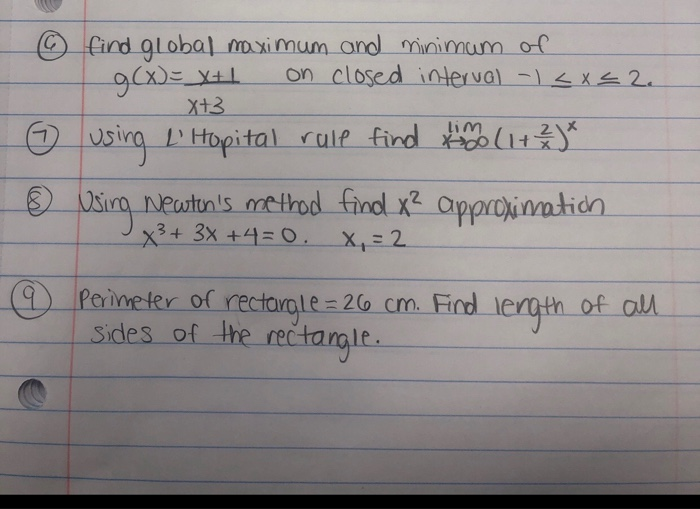 ⑥ find global maximum and minimum of
g(x) = x+1/x+3 on closed interval -1 ≤ x ≤ 2.
⑦ using L'Hopital rule find lim x→∞ (1+2/x)^x
⑧ Using Newton's method find x² approximation
x³ + 3x + 4 = 0. x₁ = 2
⑨ Perimeter of rectangle = 26 cm. Find length of all
sides of the rectangle.